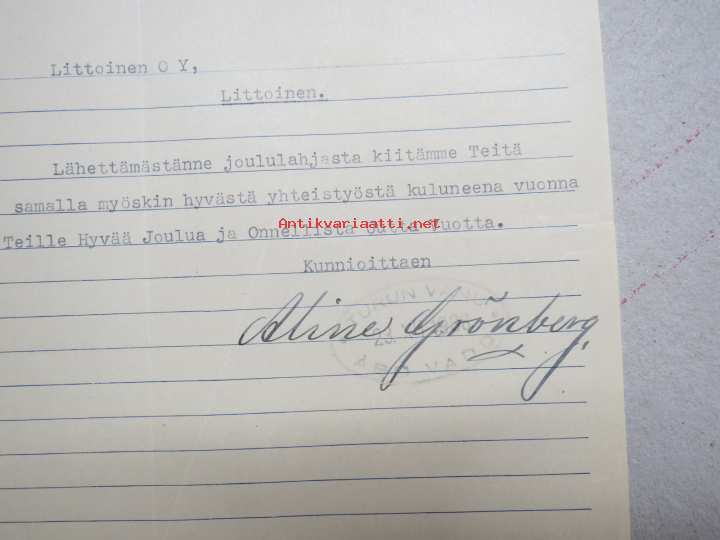 Littoinen O Y,
Littoinen.
Lähettämästänne joululahjasta kiitämme Teitä
samalla myöskin hyvästä yhteistyöstä kuluneena vuonna
Teille Hyvää Joulua ja Onnellista Uutta Vuotta.
Antikvariaatti.net
Kunnioittaen
TURUN
Aline Grönberg
ÅBO